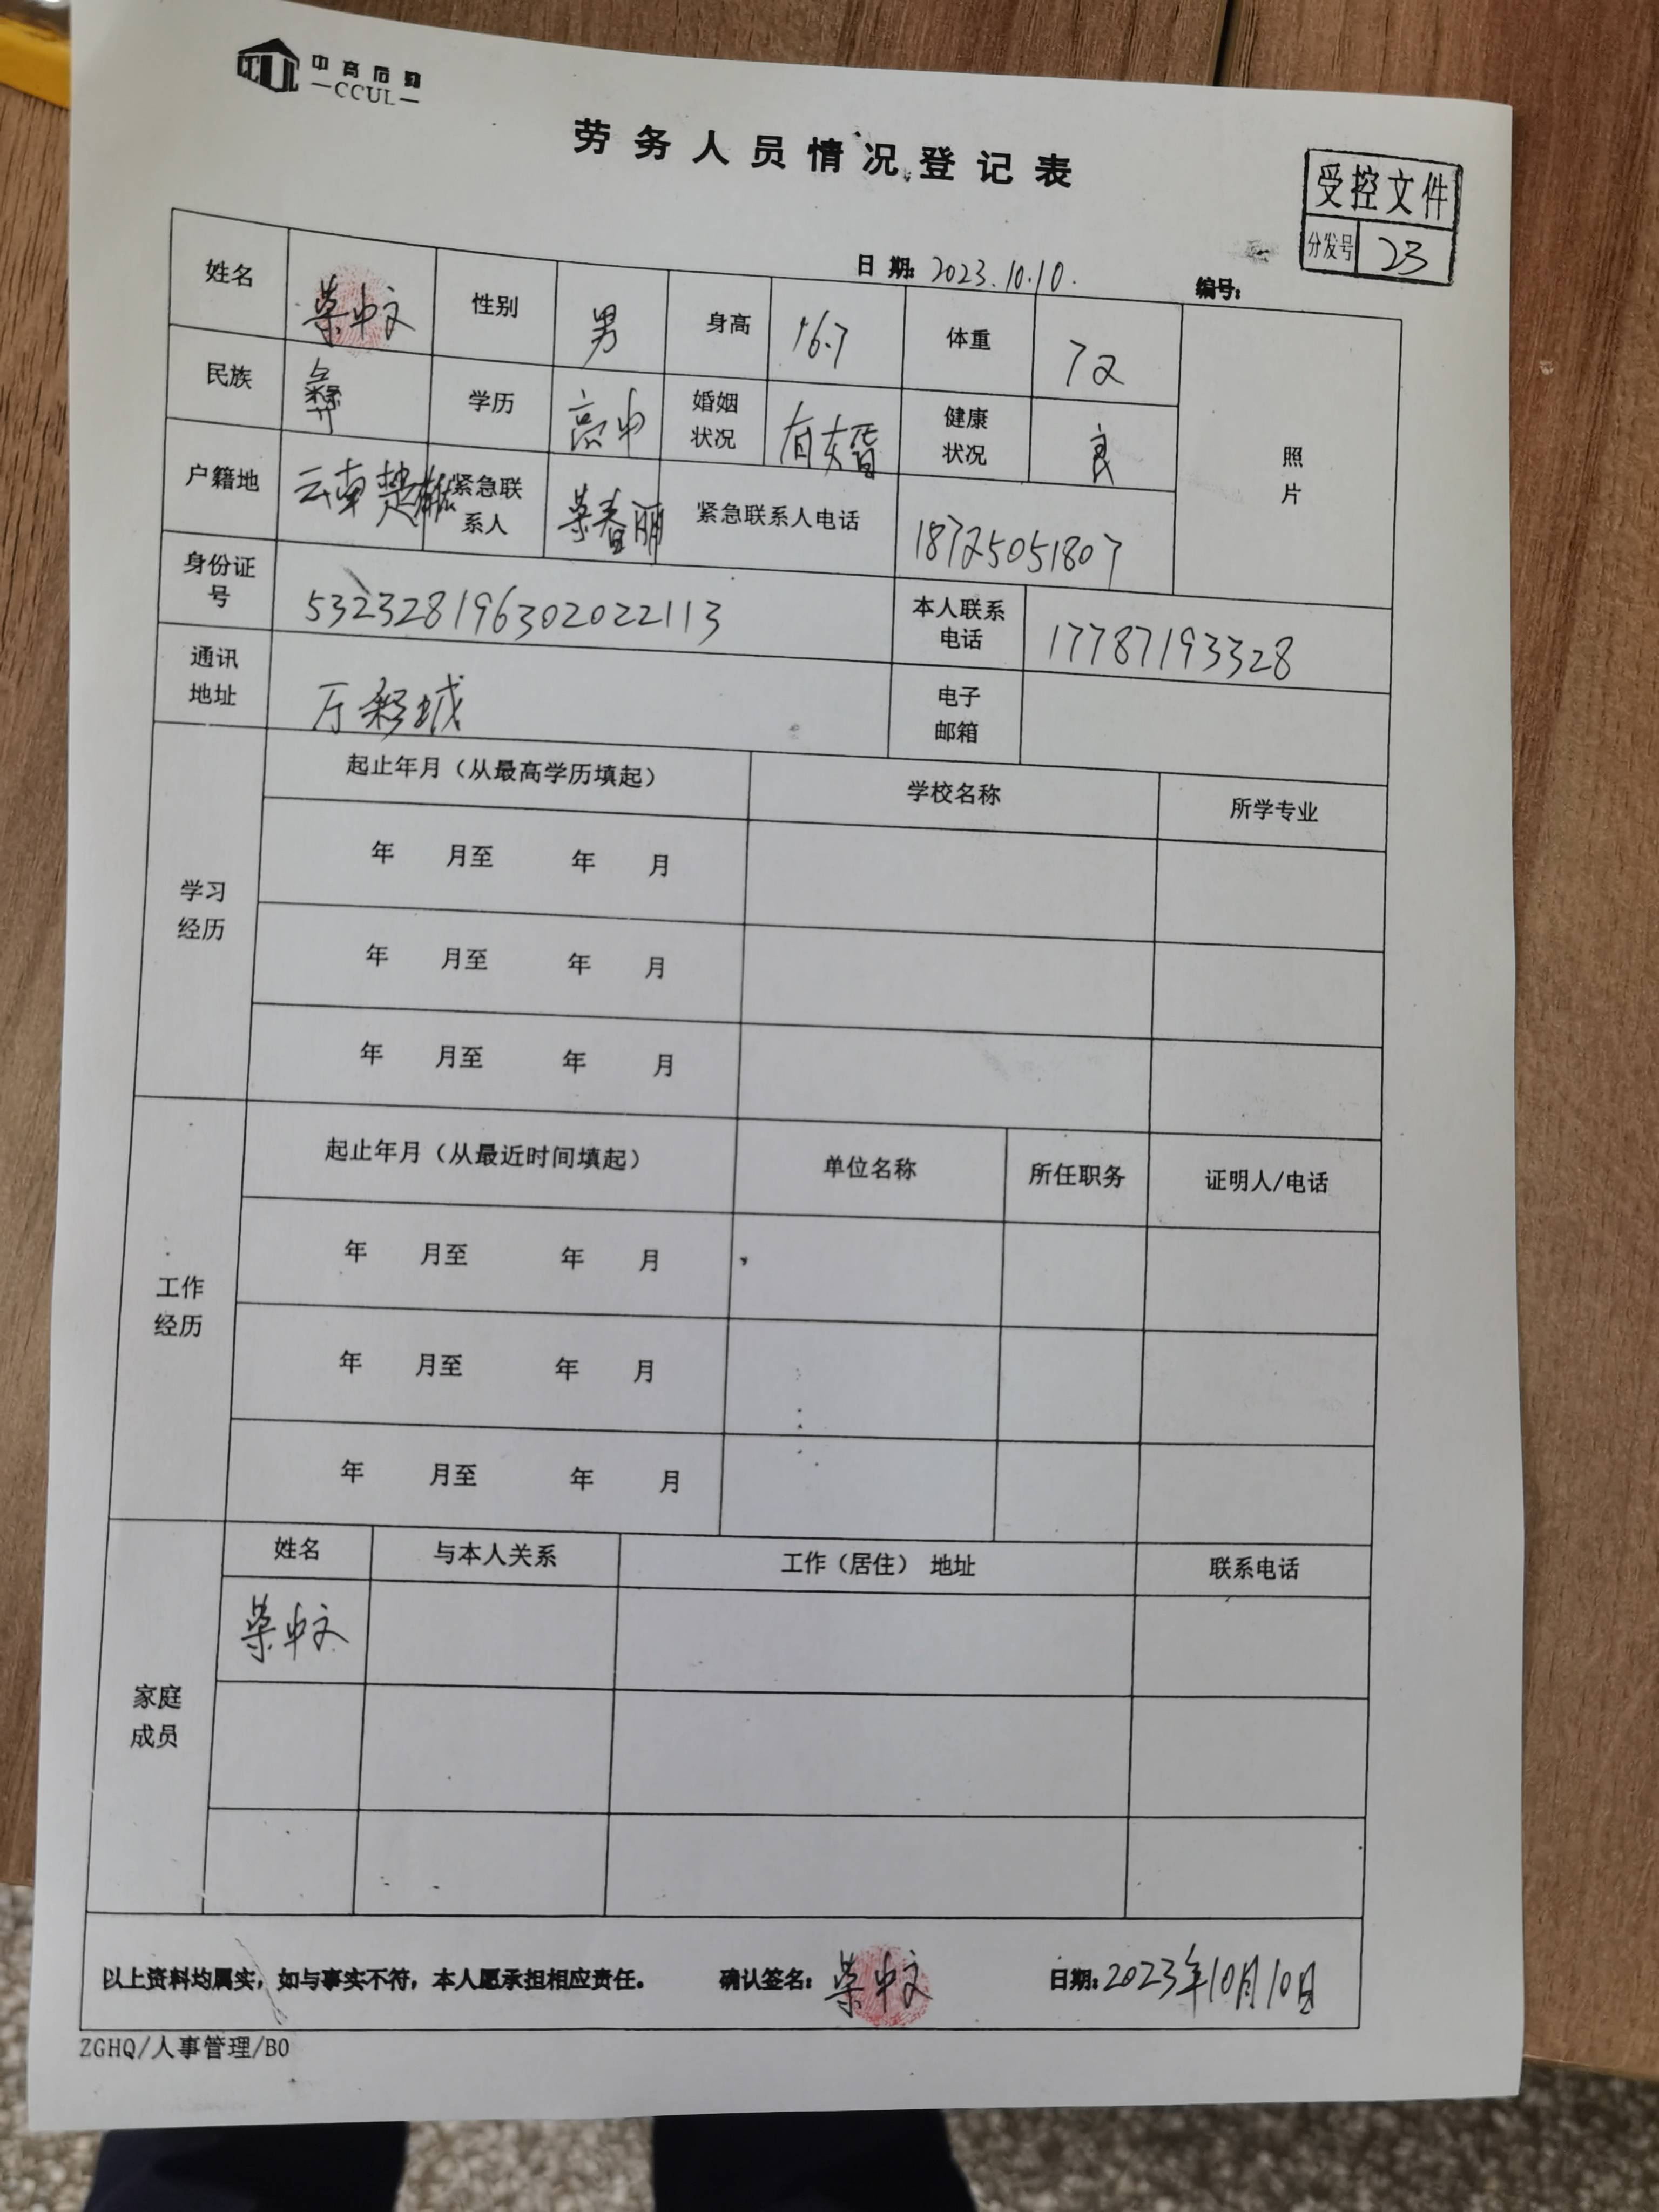 中高后勤
—CCUL—
劳务人员情况登记表
受控文件
分发号 23
日期: 2023.10.10. 编号:
姓名 荣中文 性别 男 身高 167 体重 72
民族 彝 学历 高中 婚姻状况 有婚 健康状况 良
照片
户籍地 云南楚雄 紧急联系人 荣春丽 紧急联系人电话 18725051807
身份证号 532328196302022113 本人联系电话 17787193328
通讯地址 万彩城 电子邮箱
学习经历
起止年月(从最高学历填起) 学校名称 所学专业
年 月至 年 月
年 月至 年 月
年 月至 年 月
工作经历
起止年月(从最近时间填起) 单位名称 所任职务 证明人/电话
年 月至 年 月
年 月至 年 月
年 月至 年 月
家庭成员
姓名 与本人关系 工作(居住) 地址 联系电话
荣中文
以上资料均属实,如与事实不符,本人愿承担相应责任。 确认签名: 荣中文 日期: 2023年10月10日
ZGHQ/人事管理/B0